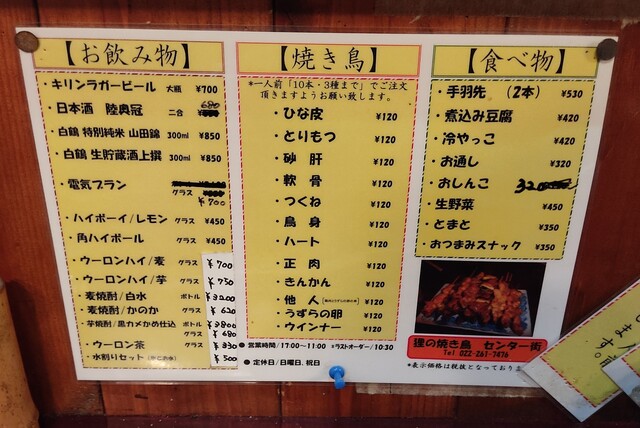 【お飲み物】
・キリンラガービール 大瓶 ¥700
・日本酒 陸奥冠 二合 680
・白鶴 特別純米 山田錦 300ml ¥850
・白鶴 生貯蔵酒上撰 300ml ¥850
・電気ブラン グラス ¥700
・ハイボーイ/レモン グラス ¥450
・角ハイボール グラス ¥450
・ウーロンハイ/麦 グラス ¥700
・ウーロンハイ/芋 グラス ¥750
・麦焼酎/白水 ボトル ¥3200
・麦焼酎/かのか グラス ¥620
・芋焼酎/黒カメかめ仕込 ボトル ¥3800
グラス ¥680
・ウーロン茶 グラス ¥330
・水割りセット ¥500
【焼き鳥】
*一人前「10本・3種まで」でご注文
頂きますようお願い致します。
・ひな皮 ¥120
・とりもつ ¥120
・砂肝 ¥120
・軟骨 ¥120
・つくね ¥120
・鳥身 ¥120
・ハート ¥120
・正肉 ¥120
・きんかん ¥120
・他人 ¥120
・うずらの卵 ¥120
・ウインナー ¥120
●営業時間/17:00~11:00 *ラストオーダー/10:30
●定休日/日曜日、祝日
【食べ物】
・手羽先 (2本) ¥530
・煮込み豆腐 ¥420
・冷やっこ ¥420
・お通し ¥320
・おしんこ 320
・生野菜 ¥450
・とまと ¥350
・おつまみスナック ¥350
狸の焼き鳥 センター街
Tel 022-261-7476
*表示価格は税抜となっており
します。